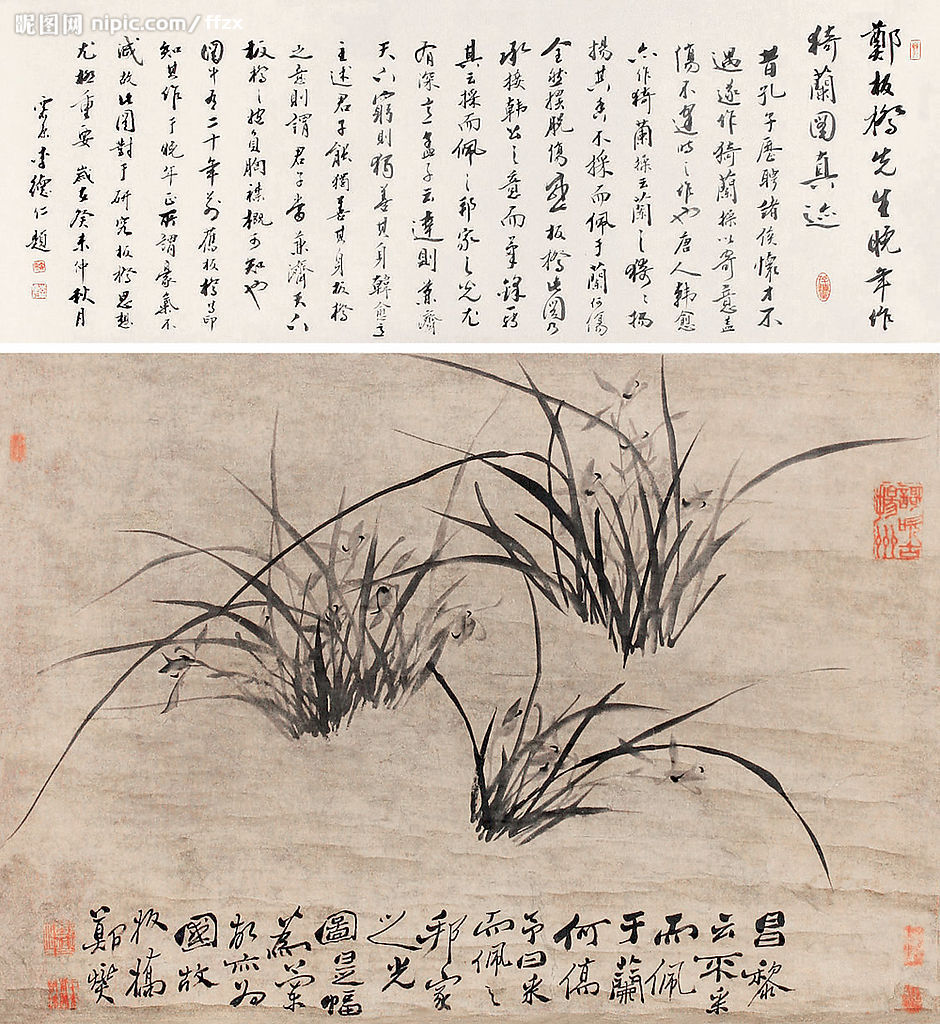 昵图网 nipic.com/ffzx
鄭板橋先生晚年作
猗蘭圖真迹
昔孔子歷聘諸侯懷才不
遇遂作猗蘭操以寄意蓋
傷不逢時之作也唐人韓愈
亦作猗蘭操云蘭之猗猗揚
揚其香不採而佩于蘭何傷
全然擺脫傷感板橋此圖乃
承接韓公之意而筆鋒
其云採而佩之邦家之光尤
有深意孟子云達則兼濟
天下窮則獨善其身韓愈
主述君子能獨善其身板橋
之意則謂君子當兼濟天下
板橋之抱負胸襟概可知也
圖中有二十年前舊板橋之印
知其作于晚年正所謂豪氣不
減故此圖對于研究板橋思想
尤極重要 歲在癸未仲秋月
李德仁題
謌吹古揚州
昌黎
云不采
而佩
于蘭
何傷
予曰采
而佩之
邦家
之光
圖是幅
亦为
國故
板橋
鄭燮